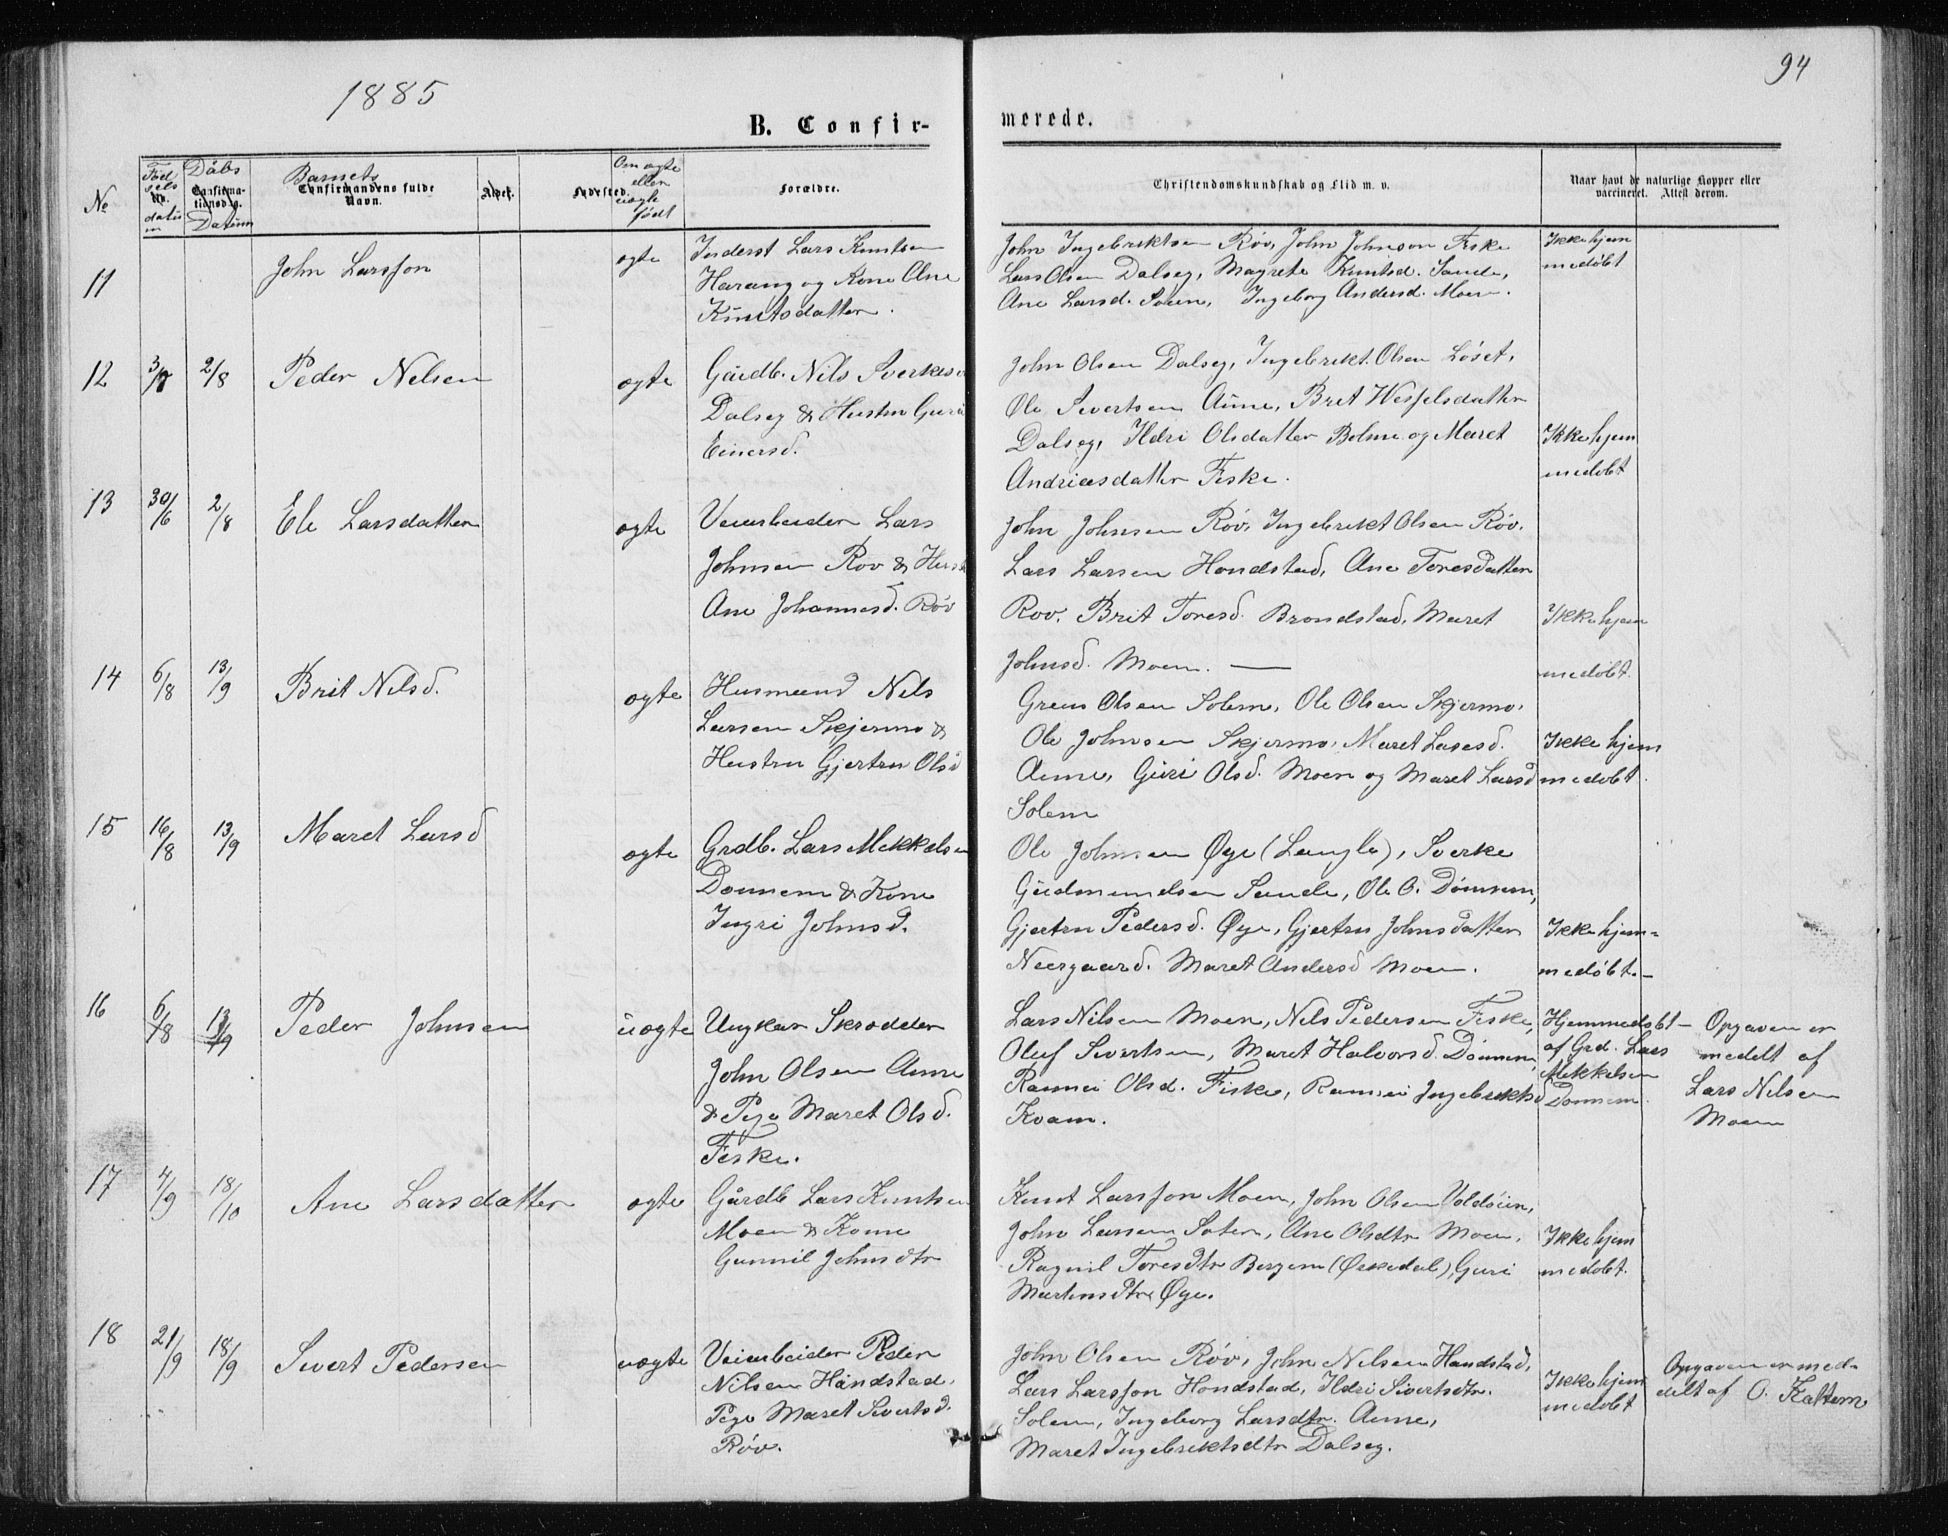 1885
94
B. Confir-
merede.
No
Fødsels No. datum
Dåbs Confirmationsdg. Datum
Barnets Confirmandens fulde Navn.
Alder.
Fødested.
Om ægte eller uægte født
Forældre.
Christendomskundskab og Flid m. v.
Naar havt de naturlige Kopper eller vaccineret. Attest derom.
11
John Larsson
ogte
Inderst Lars Knutsen
Harang og Kone Ane
Knutsdatter.
John Ingebriktsen Røv, John Johnson Fiske
Lars Olsen Dalseg, Magrete Knutsd. Sande,
Ane Larsd. Soien, Ingeborg Andersd. Moen.
Ikke hjem
medøbt
12
3/7
2/8
Peder Nelsen
ogte
Gårdb. Nils Sverkesen
Dalseg & Hustru Guri
Einersd.
John Olsen Dalseg, Ingebrikt Olsen Løset,
Ole Sivertsen Aune, Bret Wesselsdatter
Dalseg, Ildri Olsdatter Bolme og Maret
Andriasdatter Fiske.
Ikke hjem
medøbt
13
30/6
2/8
Eli Larsdatter
ogte
Veiarbeider Lars
Johnsen Rov & Hust
Ane Johannesd. Røv
John Johnsen Røv, Ingebrikt Olsen Røv,
Lars Larsen Hondstad, Ane Toresdatter
Rov. Brit Toresd. Brondstad, Maret
Johnsd. Moen. —
Ikke hjem
medøbt.
14
6/8
13/9
Brit Nilsd.
ogte
Husmand Nels
Larsen Skjermo &
Hustru Gjertru Olsd
Olsen Solem, Ole Olsen Skjermo,
Ole Johnsen Skjermo, Maret Lasesd.
Aune, Guri Olsd. Moen og Maret Larsd
Solem
Ikke hjem
medøbt.
15
16/8
13/9
Maret Larsd
ogte
Grdb. Lars Mekkelsen
Donnem & Kone
Ingri Johnsd.
Ole Johnsen Øye (Langlo), Sverke
Gudmundsen Sande, Ole O. Dønnem,
Gjertru Pedersd. Øye, Gjertru Johnsdatter
Neergaard. Maret Andersd Moen.
Ikke hjem-
medøbt.-
16
6/8
13/9
Peder Johnsen
uogte
Ungkar Skrædder
John Olsen Aune
& Pige Maret Olsd.
Fiske.
Lars Nilsen Moen, Nels Pedersen Fiske,
Oluf Sivertsen, Maret Halvorsd. Dønnem,
Rannei Olsd. Fiske, Rannei Ingebriktsd
Kvam.
Hjemmedøbt
af Grd. Lars
Mekkelsen
Donnem.
Opgaven er
medelt af
Lars Nilsen
Moen
17
4/9
18/10
Ane Larsdatter
ogte
Gårdb Lars Knutsen
Moen & Kone
Gunnil Johnsdtr
Knut Larsson Moen, John Olsen Voldøien,
John Larsen Soter, Ane Olsdtr Moen,
Ragnil Toresdtr Bergem (Ørkedal), Guri
Martinsdtr Øye.
Ikke hjem
medøbt.
18
21/9
18/9
Sivert Pedersen
uogte
Veiarbeider Peder
Nilsen Håndstad,
Pige Maret Sivertsd.
Røv.
John Olsen Røv, John Nelsen Handstad,
Lars Larsson Hondstad, Ildri Sivertsdtr.
Solem, Ingeborg Larsdtr. Aune,
Maret Ingebriktsdtr Dalseg.
Ikke hjem
medøbt
Opgaven er med-
delt af O. Kattem